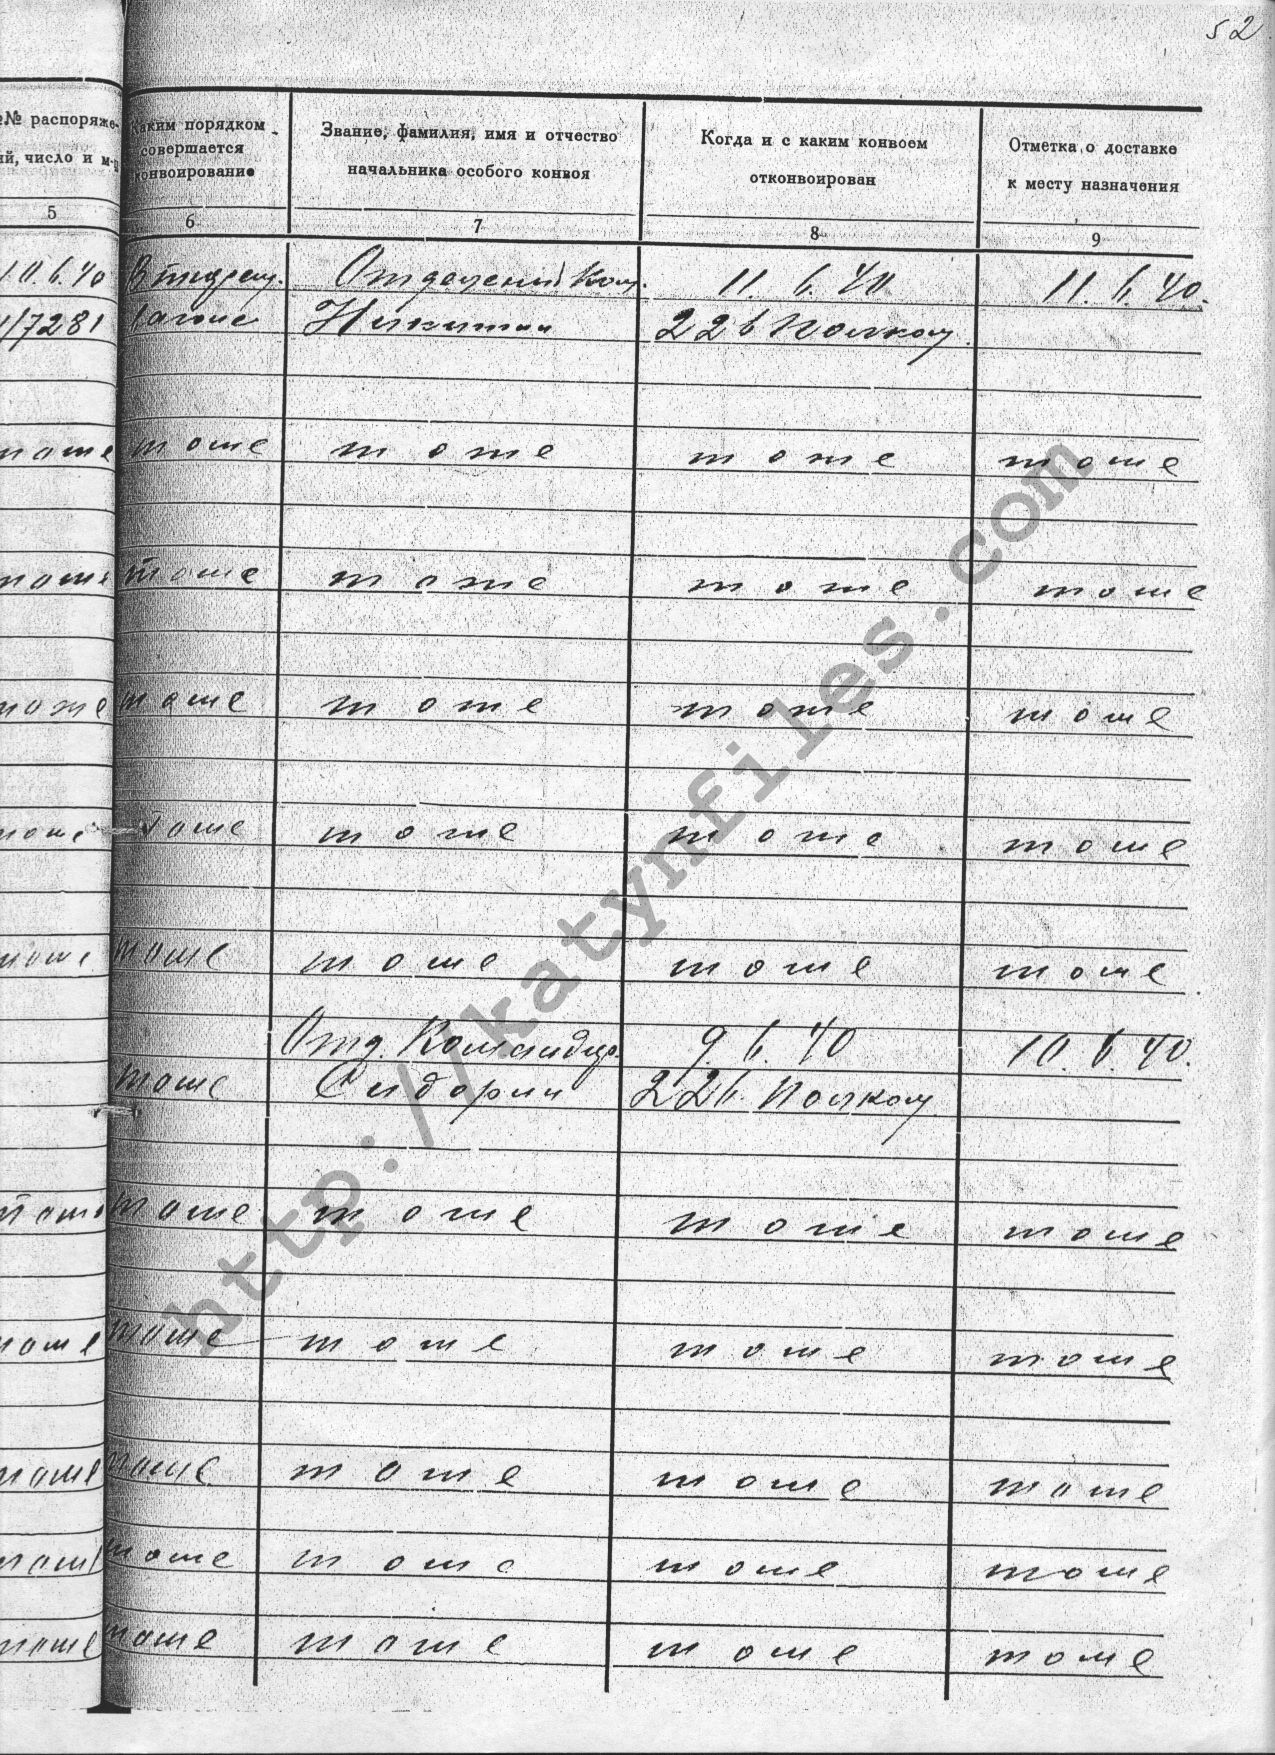 52
№№ распоряже-
ий, число и м-ц
Каким порядком
совершается
конвоирование
Звание, фамилия, имя и отчество
начальника особого конвоя
Когда и с каким конвоем
отконвоирован
Отметка о доставке
к месту назначения
5 6 7 8 9
10.6.40 Отделений Ком. 11.6.40 11.6.40.
1/7281 вагоне Никитин 226 Полком.
тоже тоже тоже тоже тоже
тоже тоже тоже тоже тоже
тоже тоже тоже тоже тоже
тоже тоже тоже тоже тоже
тоже тоже тоже тоже тоже
Отд. Командир. 9.6.40 10.6.40.
тоже Сидорин 226. Полком.
тоже тоже тоже тоже тоже
тоже тоже тоже тоже тоже
тоже тоже тоже тоже тоже
тоже тоже тоже тоже тоже
тоже тоже тоже тоже тоже
http://katynfiles.com